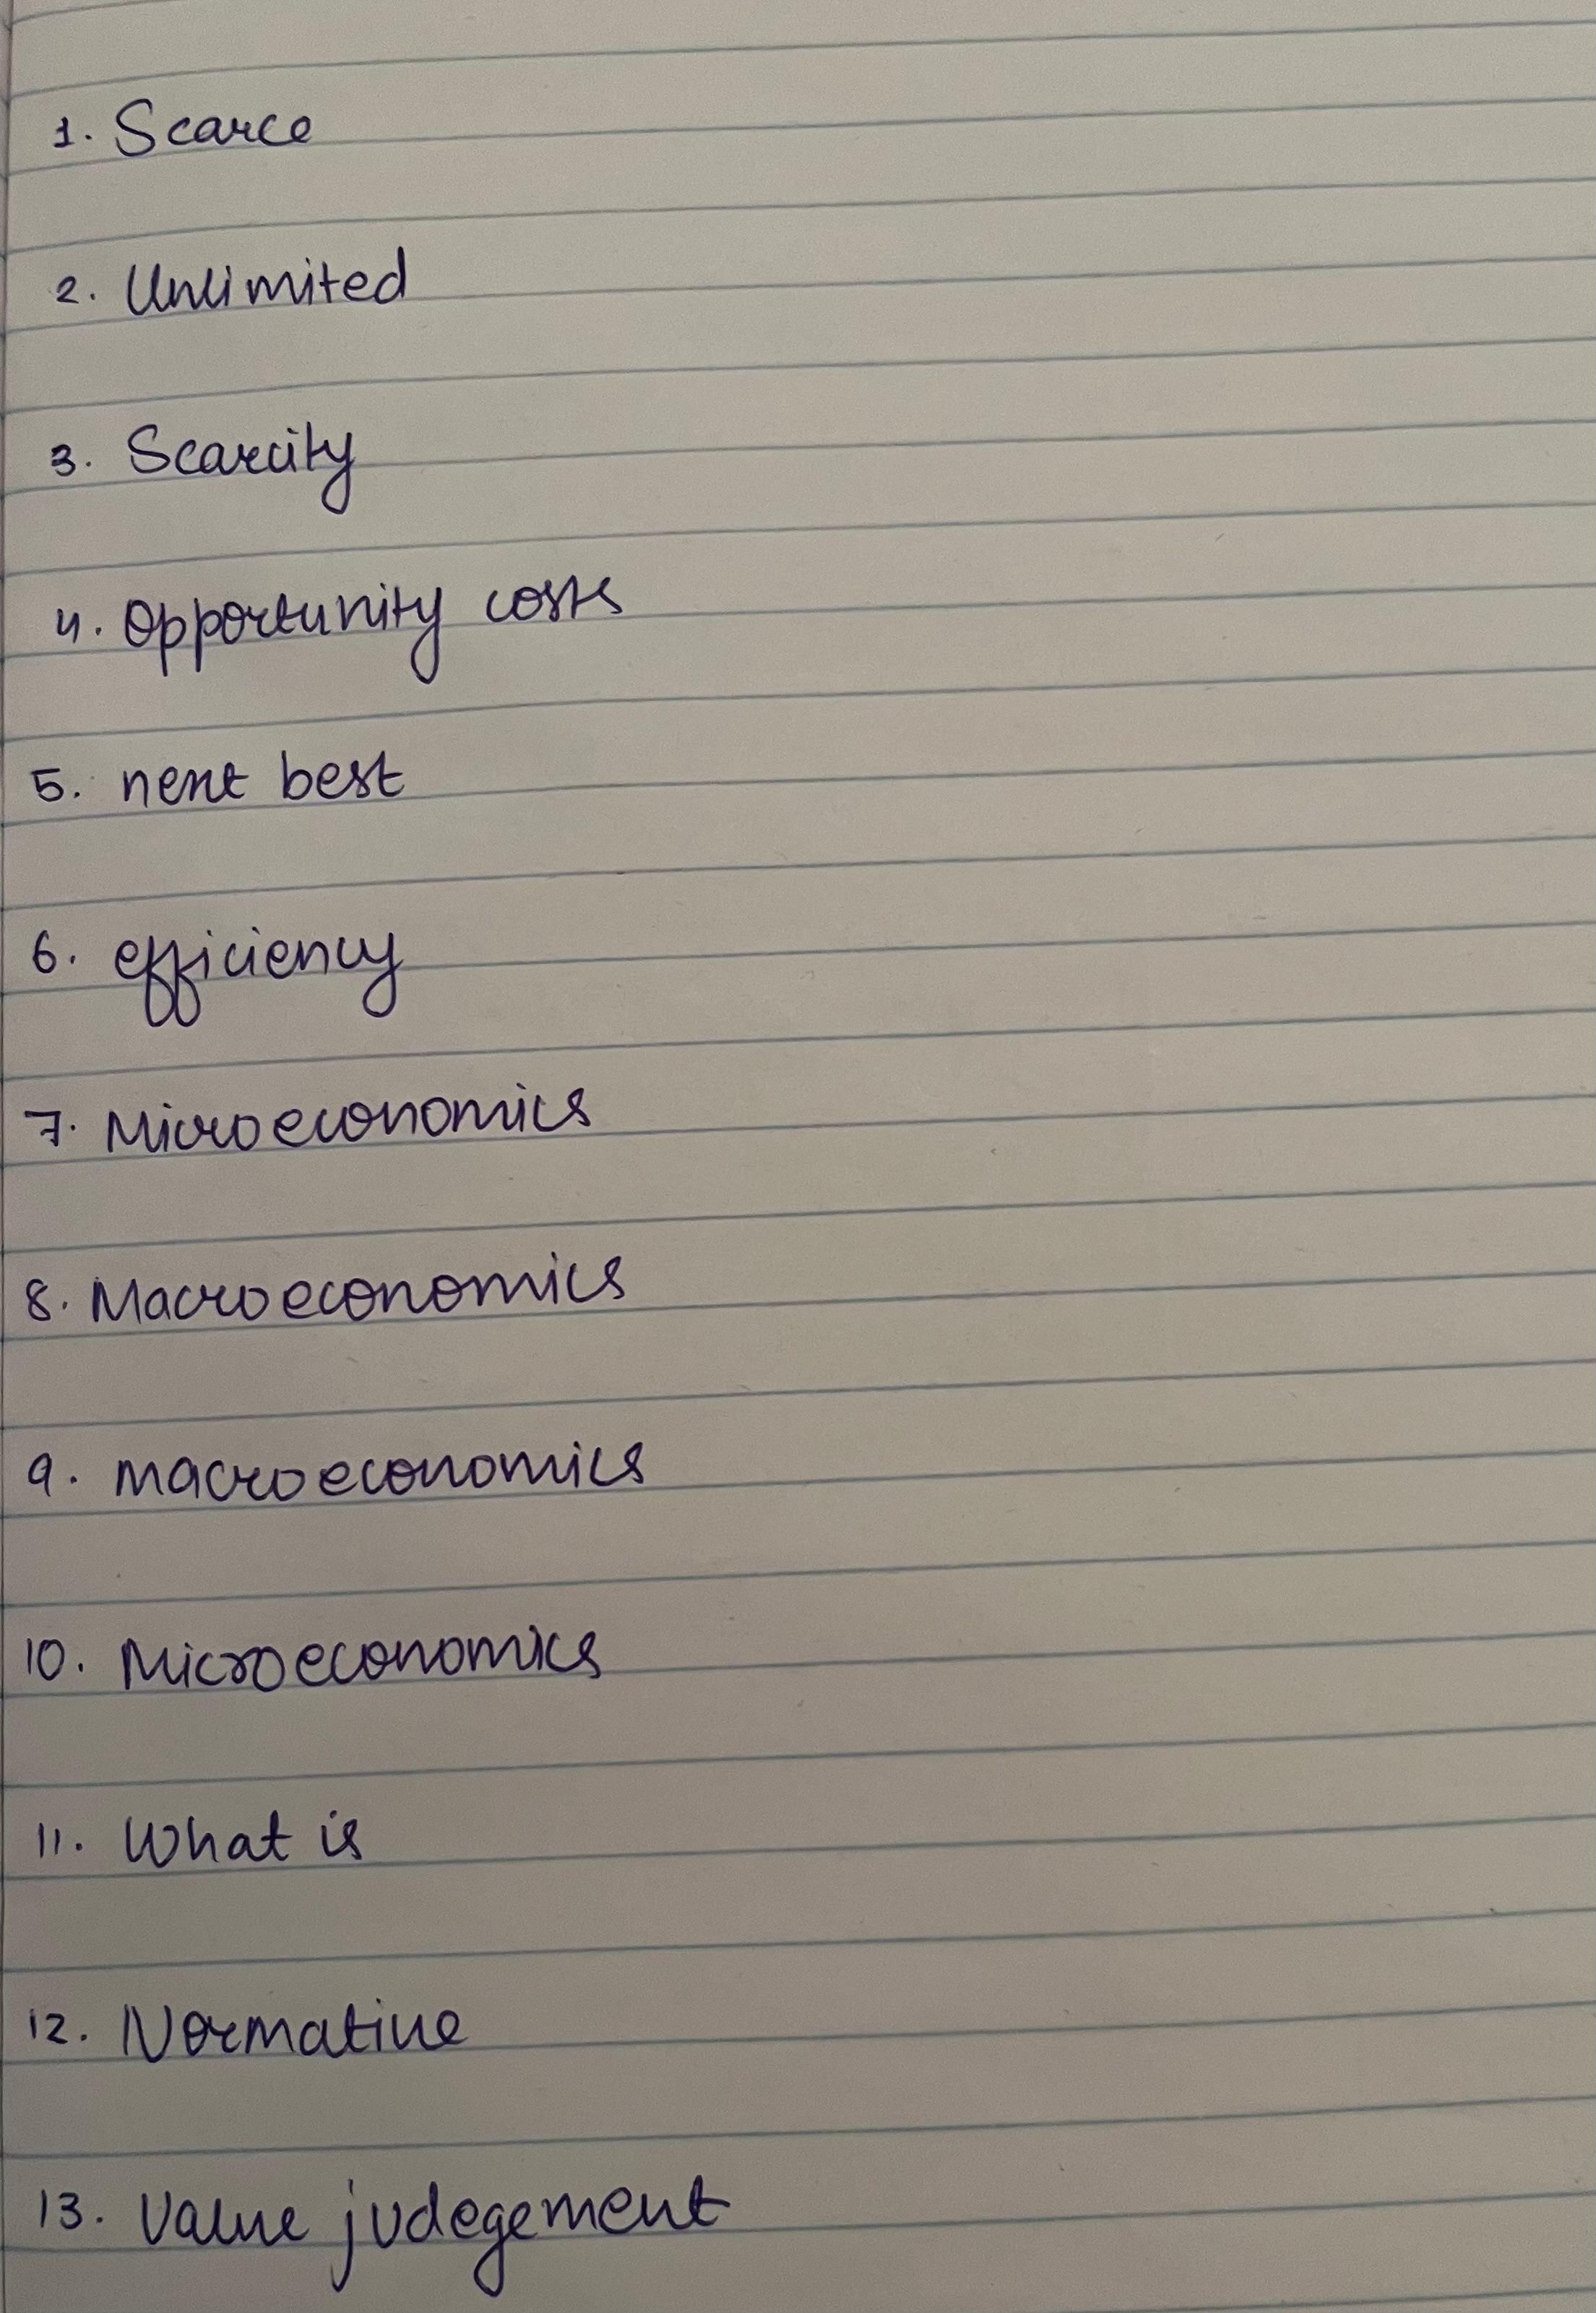 1. Scarce
2. Unlimited
3. Scarcity
4. Opportunity costs
5. next best
6. efficiency
7. Microeconomics
8. Macroeconomics
9. Macroeconomics
10. Microeconomics
11. What is
12. Normative
13. Value judegement